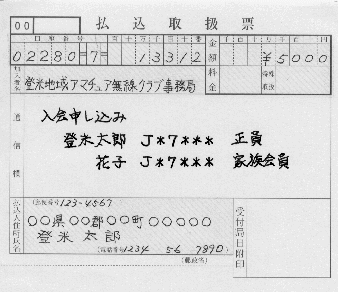 00 払込取扱票
口座番号 百 十 万 千 百 十 番
02280=7= 13312
金額 千 百 十 万 千 百 十 円
¥5000
料金 特殊取扱
加入者名 登米地域アマチュア無線クラブ事務局
通信欄
入会申し込み
登米太郎 J*7*** 正員
花子 J*7*** 家族会員
払込人住所氏名
(郵便番号123-4567)
○○県○○郡○○町○○○○○
登米 太郎
(電話番号1234 56 7890)
(郵政省)
受付局日附印